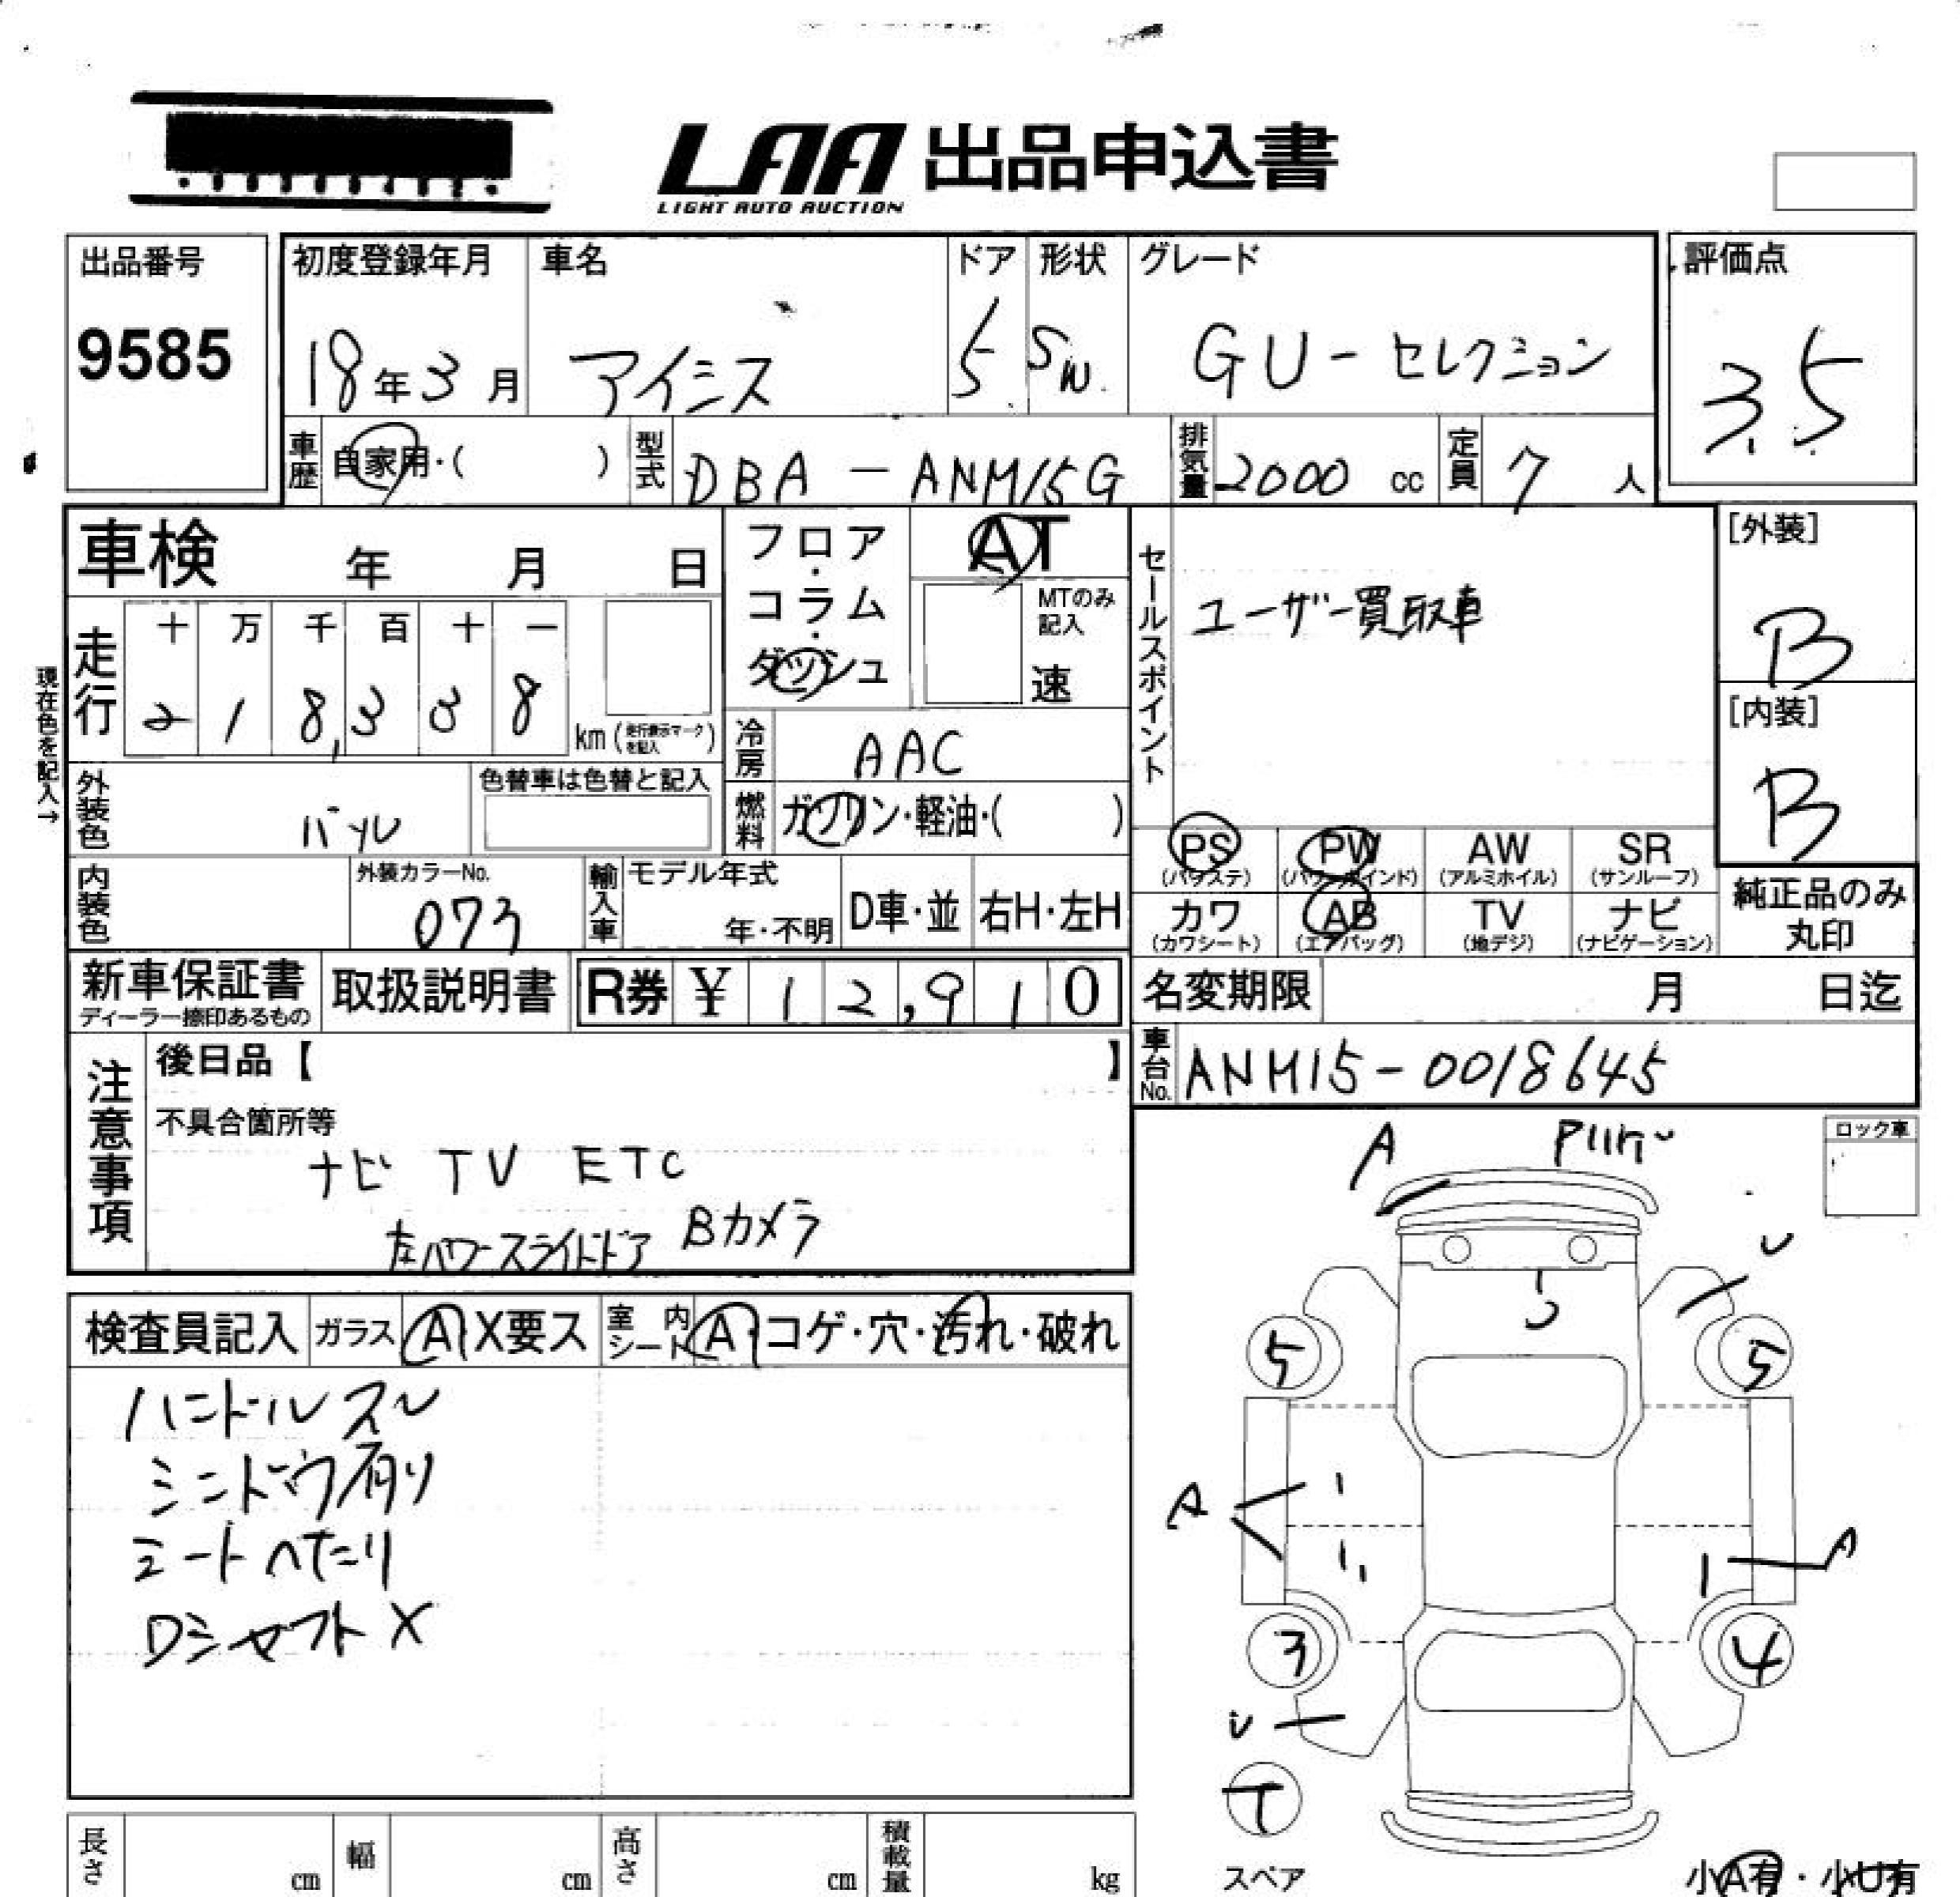 LAA 出品申込書
LIGHT AUTO AUCTION
出品番号
9585
初度登録年月
18年3月
車名
アイシス
ドア
5
形状
SW.
グレード
GU-セレクション
評価点
3.5
車歴
自家用・( )
型式
DBA-ANM15G
排気量
2000 cc
定員
7人
車検 年 月 日
フロア・コラム・ダッシュ
AT
MTのみ記入
速
セールスポイント
ユーザー買取車
[外装]
B
[内装]
B
現在色を記入→
走行
十 万 千 百 十 一
2 1 8,3 3 8
km (走行表示マークを記入)
冷房
AAC
外装色
パール
色替車は色替と記入
燃料
ガソリン・軽油・( )
PS (パワステ)
PW (パワーウインド)
AW (アルミホイル)
SR (サンルーフ)
内装色
外装カラーNo.
073
輸入車
モデル年式
年・不明
D車・並
右H・左H
カワ (カワシート)
AB (エアバッグ)
TV (地デジ)
ナビ (ナビゲーション)
純正品のみ丸印
新車保証書
ディーラー捺印あるもの
取扱説明書
R券 ¥ 12,910
名変期限 月 日迄
車台No.
ANM15-0018645
注意事項
後日品【 】
不具合箇所等
ナビ TV ETC
左パワースライドドア Bカメラ
ロック車
A
U
5
5
A
A
3
4
U
T
スペア
小A有・小U有
検査員記入
ガラス A X要ス
室内シート A・コゲ・穴・汚れ・破れ
ハンドルスレ
シンドウ有り
シートへたり
Dシャフト X
長さ cm
幅 cm
高さ cm
積載量 kg